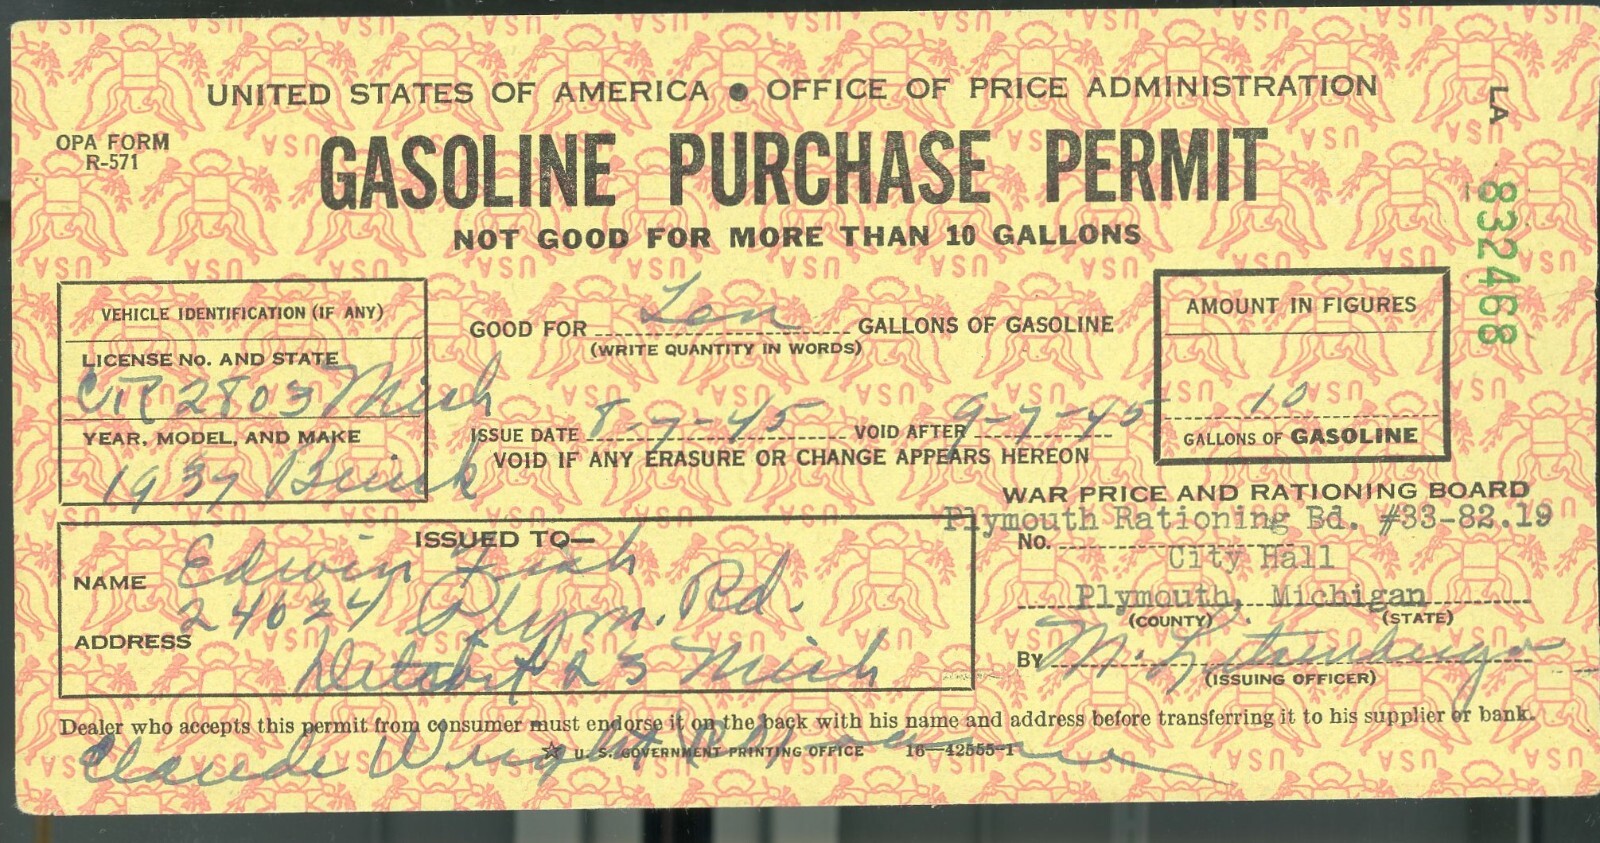 UNITED STATES OF AMERICA ● OFFICE OF PRICE ADMINISTRATION
OPA FORM
R-571
GASOLINE PURCHASE PERMIT
NOT GOOD FOR MORE THAN 10 GALLONS
LA 832468
VEHICLE IDENTIFICATION (IF ANY)
LICENSE No. AND STATE
2803 Mich
YEAR, MODEL, AND MAKE
1937 Buick
GOOD FOR Ten GALLONS OF GASOLINE
(WRITE QUANTITY IN WORDS)
ISSUE DATE 8-7-45 VOID AFTER 9-7-45
VOID IF ANY ERASURE OR CHANGE APPEARS HEREON
AMOUNT IN FIGURES
10
GALLONS OF GASOLINE
ISSUED TO—
NAME Edwin Fish
ADDRESS 24024 Plym. Rd.
Detroit 23 Mich
WAR PRICE AND RATIONING BOARD
Plymouth Rationing Bd. #33-82.19
No.
City Hall
Plymouth, Michigan
(COUNTY) (STATE)
BY M.
(ISSUING OFFICER)
Dealer who accepts this permit from consumer must endorse it on the back with his name and address before transferring it to his supplier or bank.
☆ U. S. GOVERNMENT PRINTING OFFICE 16—42555-1
Claude Wright